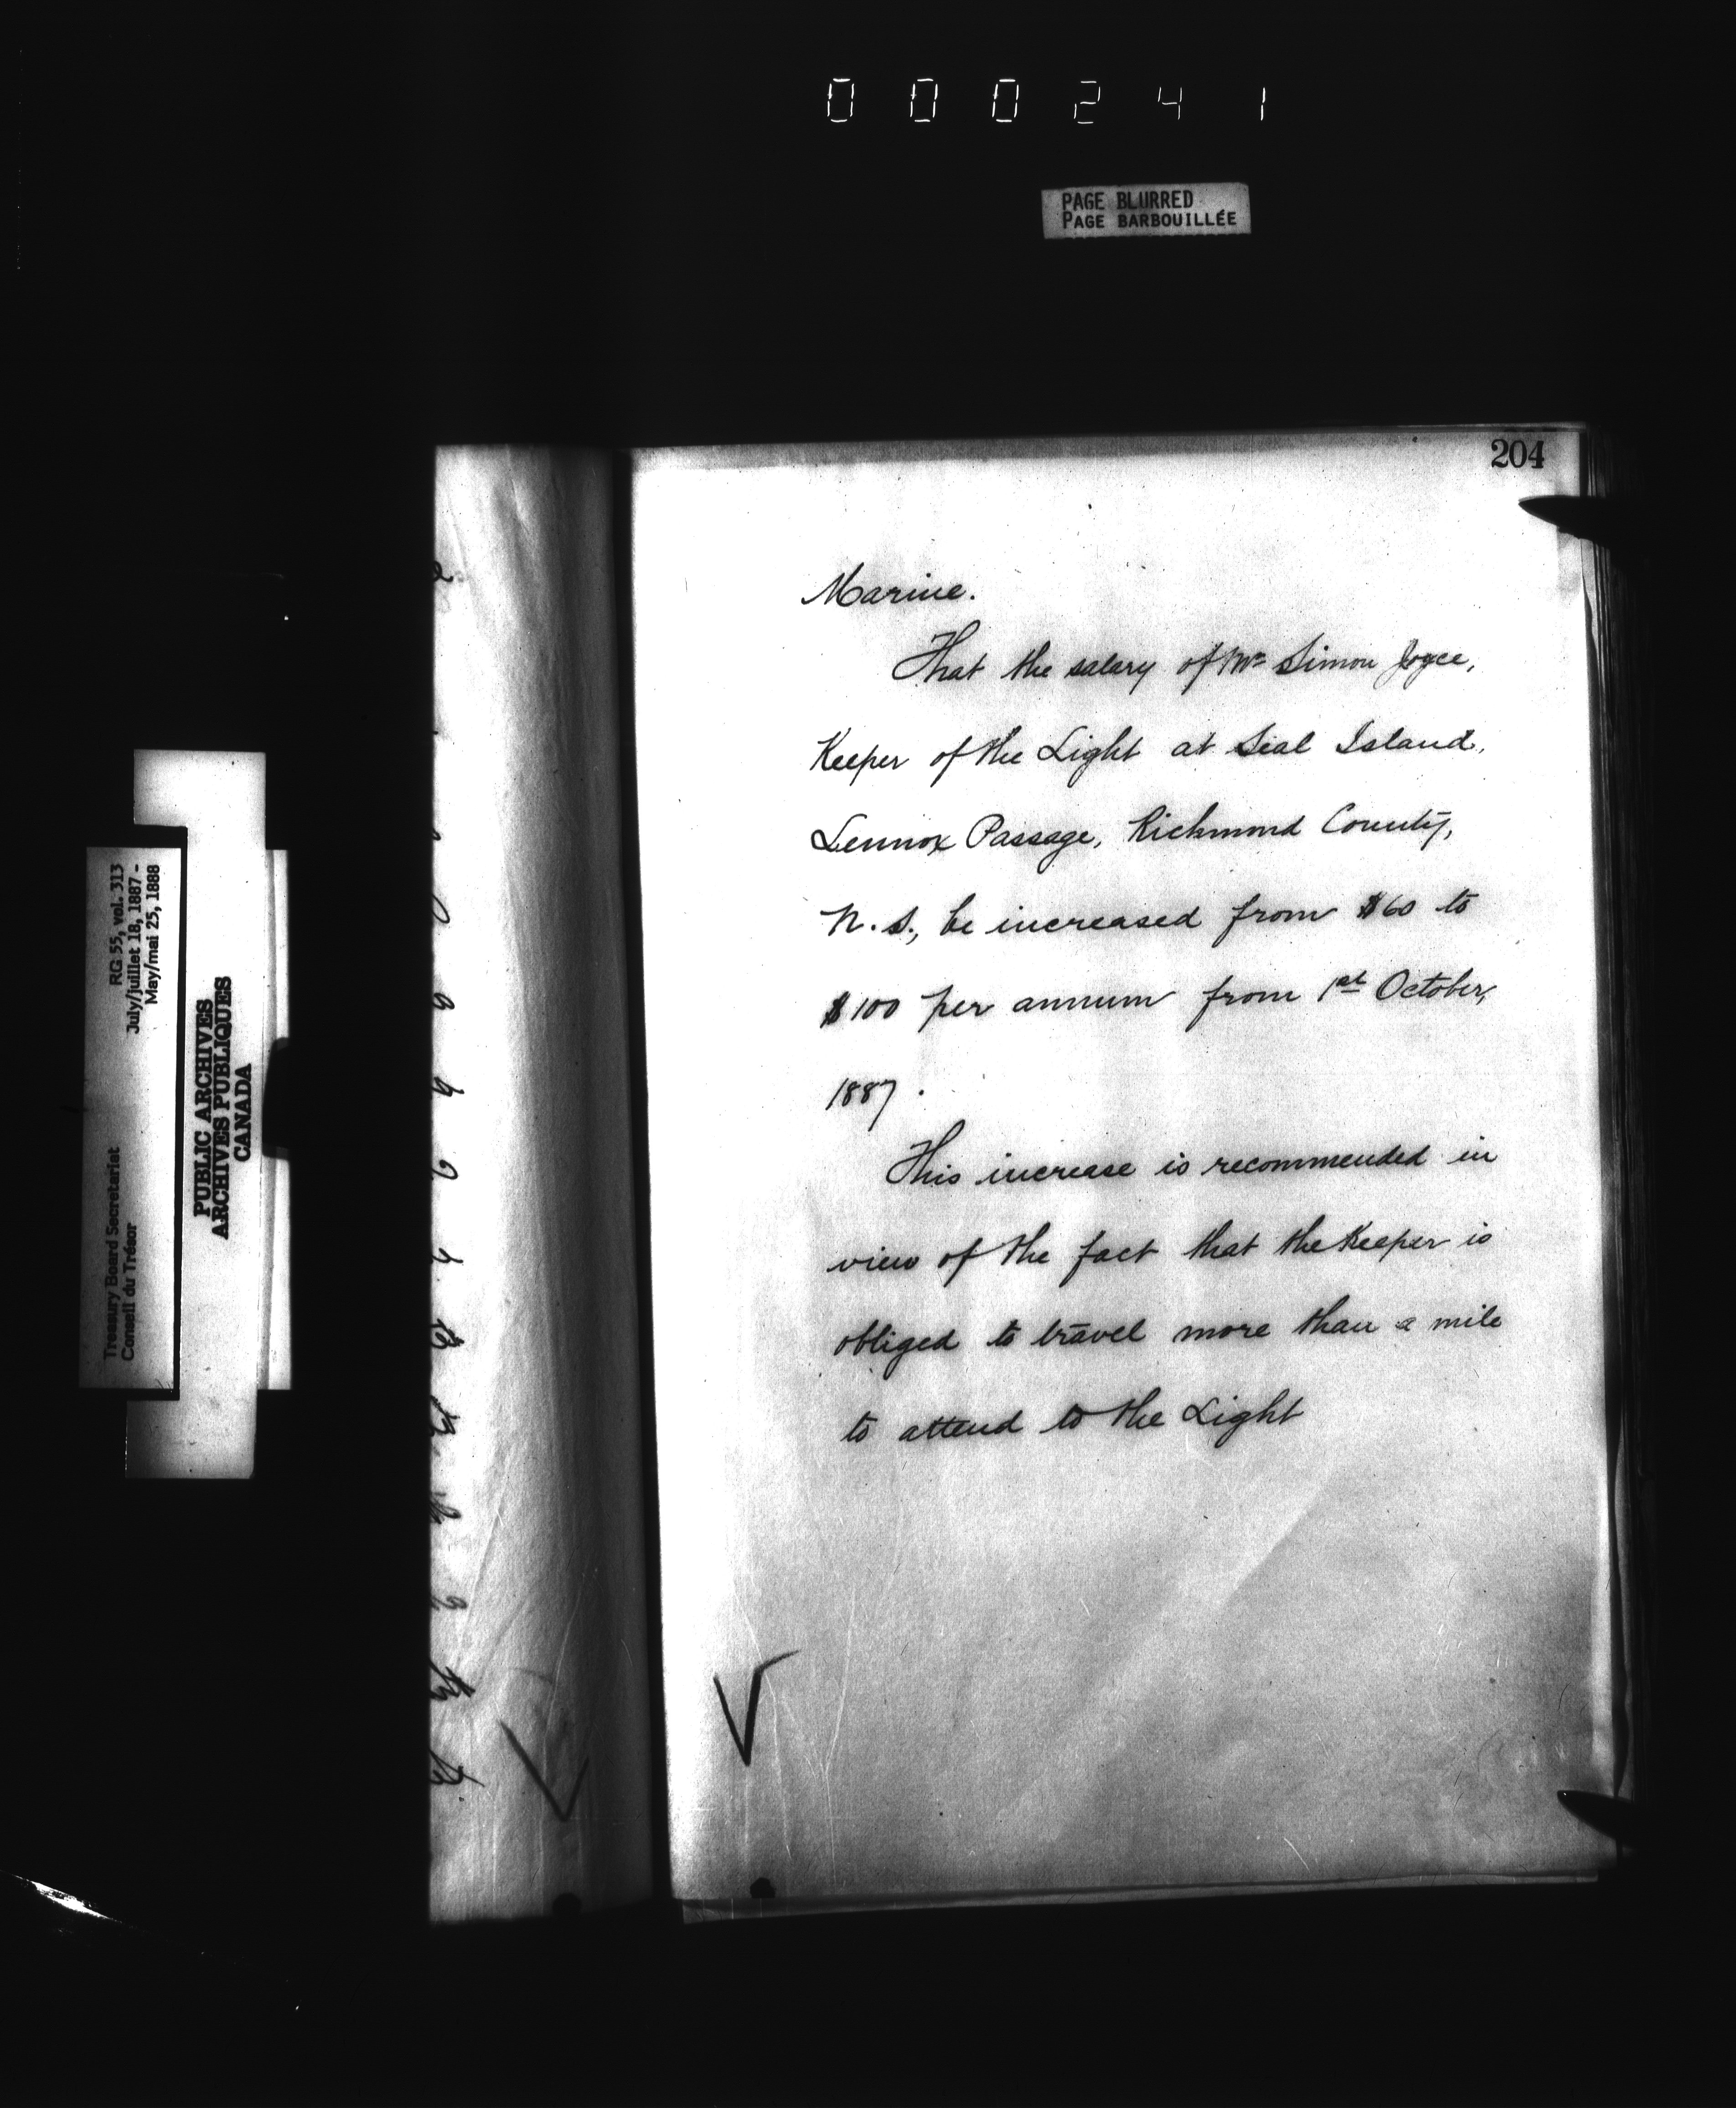 000241
PAGE BLURRED
PAGE BARBOUILLÉE
204
Marine.
That the salary of Mr Simon Joyce,
Keeper of the Light at Seal Island,
Lennox Passage, Richmond County,
N.S., be increased from $60 to
$100 per annum from 1st October,
1887.
This increase is recommended in
view of the fact that the Keeper is
obliged to travel more than a mile
to attend to the Light
Treasury Board Secretariat
Conseil du Trésor
RG 55, vol. 313
July/juillet 18, 1887 -
May/mai 25, 1888
PUBLIC ARCHIVES
ARCHIVES PUBLIQUES
CANADA